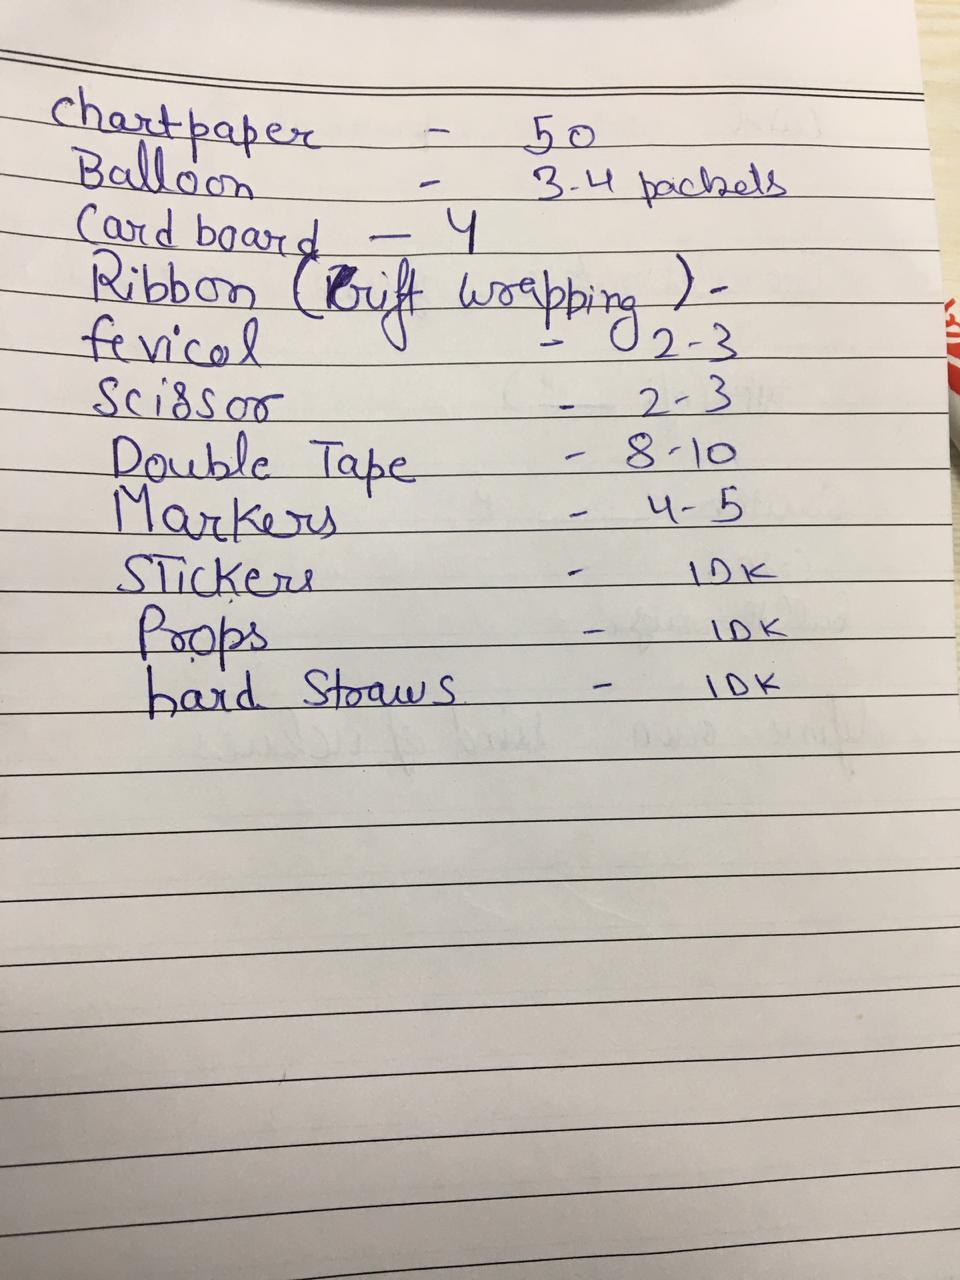 Chartpaper - 50
Balloon - 3-4 packets
Card board - 4
Ribbon (Gift wrapping) -
fevicol - 2-3
Scissor - 2-3
Double Tape - 8-10
Markers - 4-5
STickers - IDK
Props - IDK
hard Straws - IDK